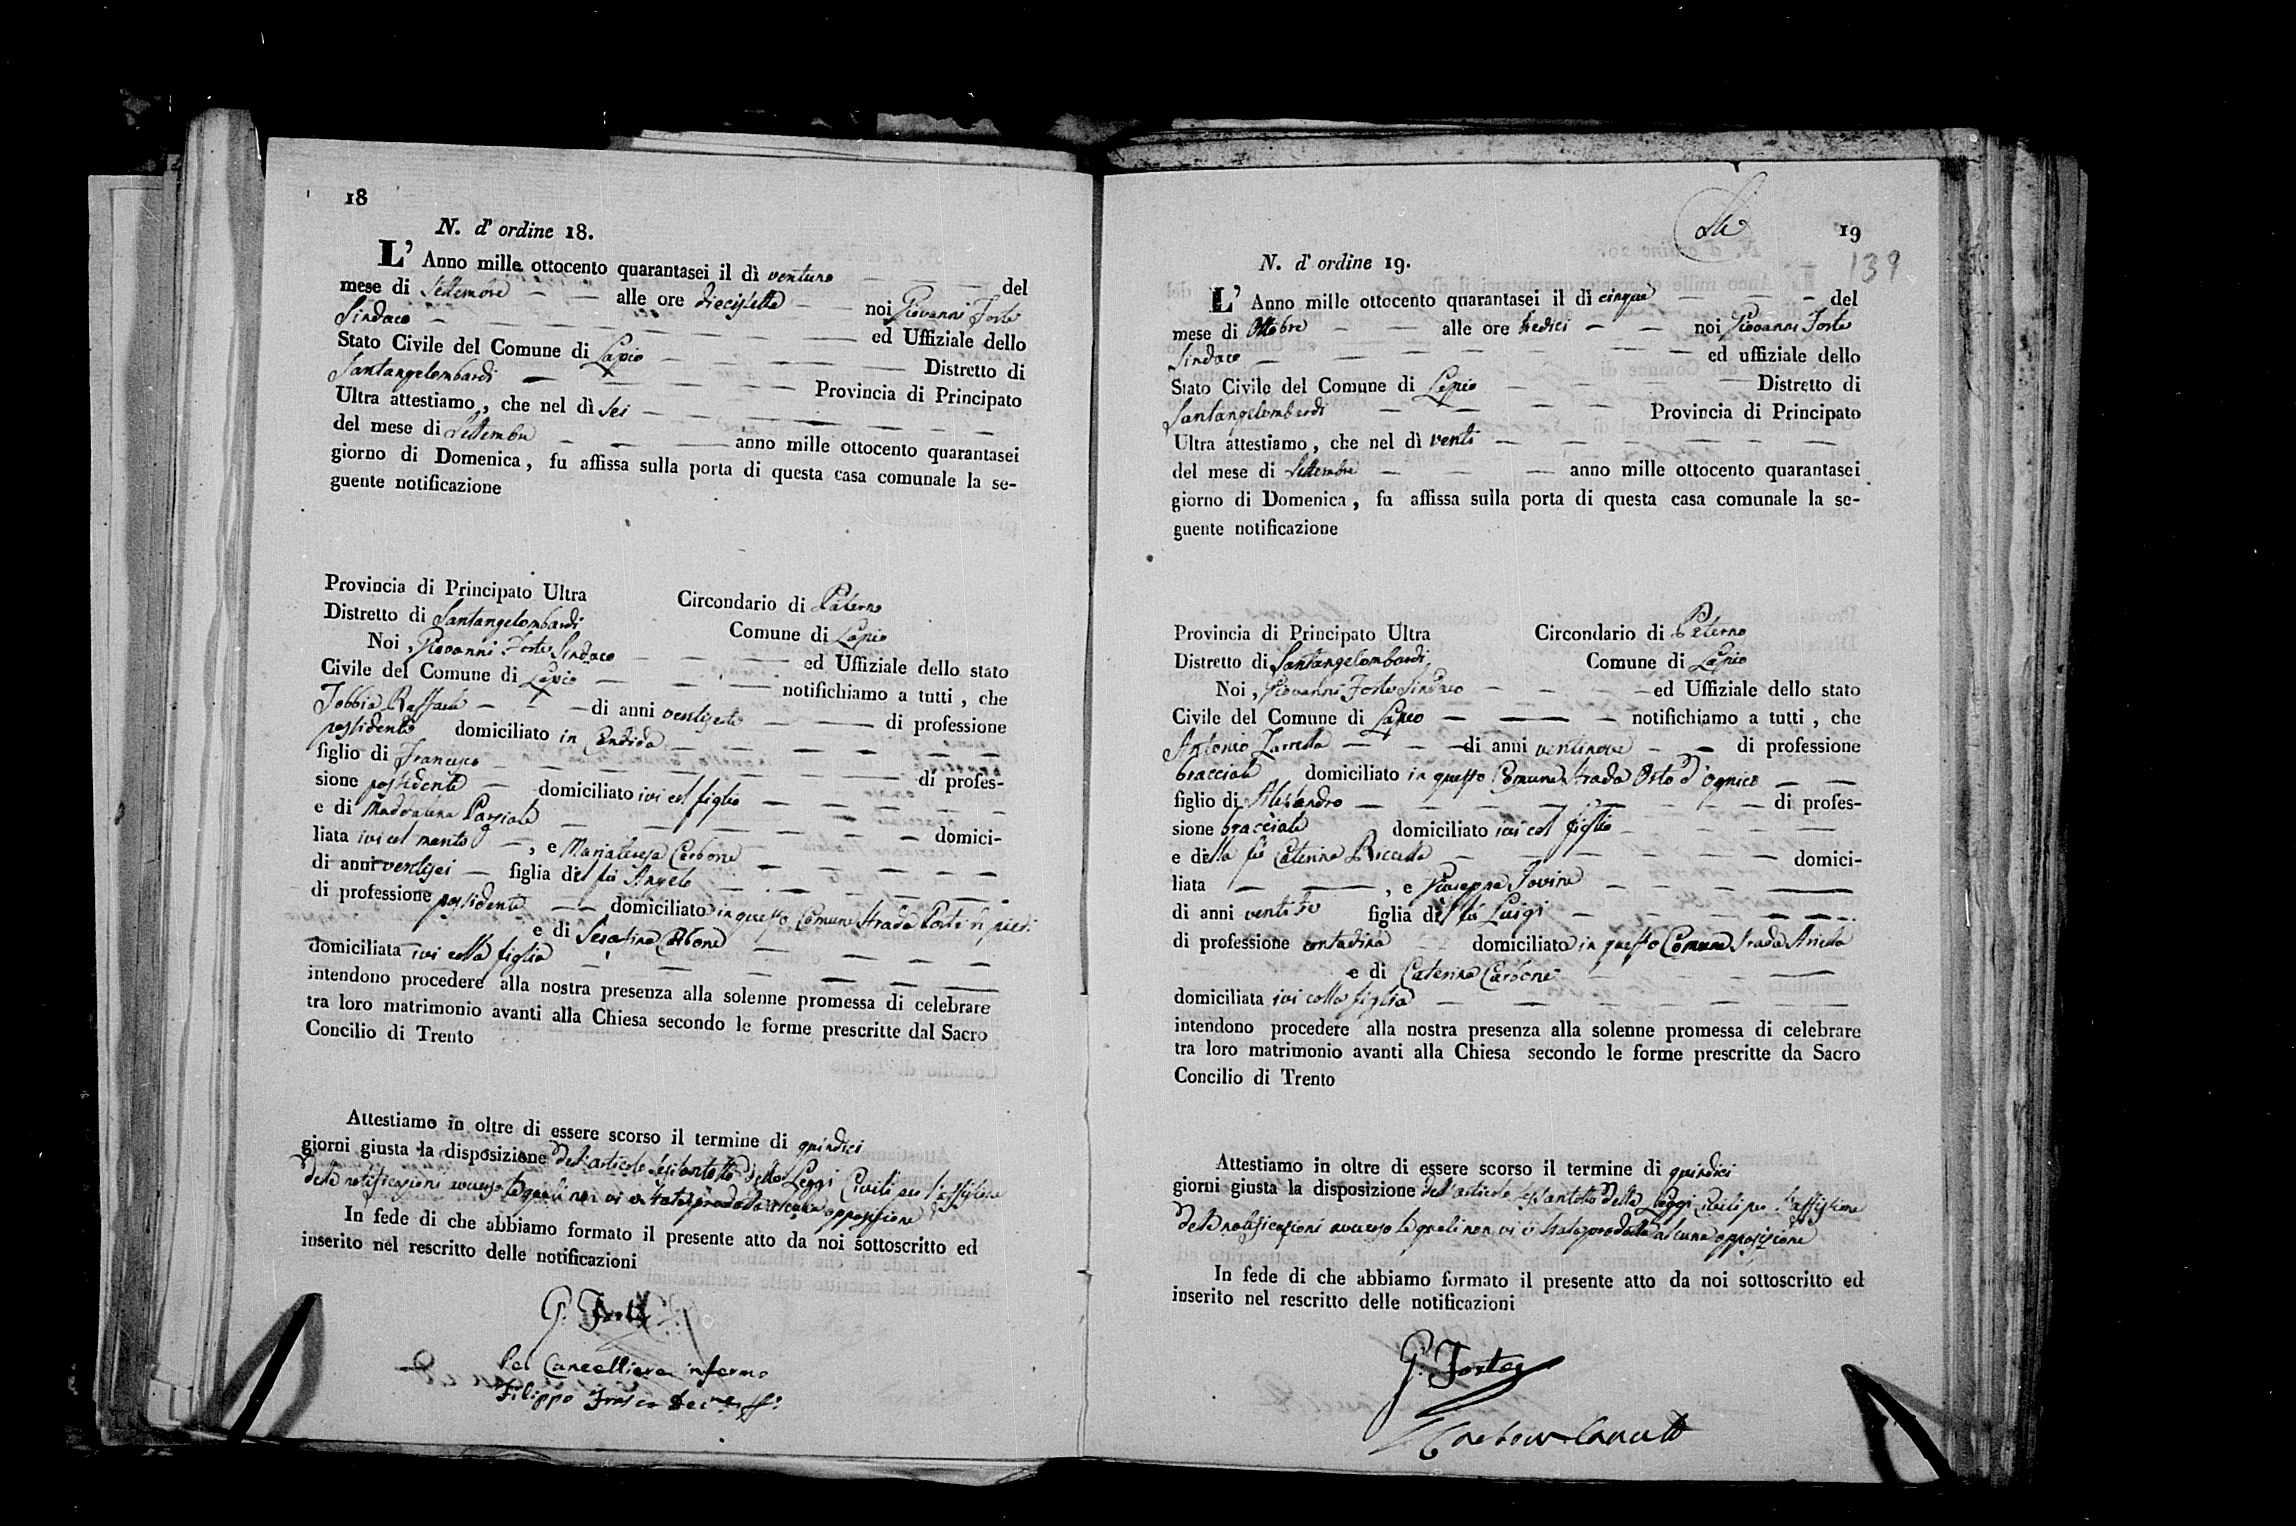 18
N. d' ordine 18.
L' Anno mille ottocento quarantasei il dì ventuno del
mese di Settembre alle ore diecisette noi Giovanni Forte
Sindaco ed Uffiziale dello
Stato Civile del Comune di Lapio Distretto di
Santangelombardi Provincia di Principato
Ultra attestiamo, che nel dì sei
del mese di Settembre anno mille ottocento quarantasei
giorno di Domenica, fu affissa sulla porta di questa casa comunale la se-
guente notificazione
Provincia di Principato Ultra Circondario di Paterno
Distretto di Santangelombardi Comune di Lapio
Noi, Giovanni Forte Sindaco ed Uffiziale dello stato
Civile del Comune di Lapio notifichiamo a tutti, che
Raffaele di anni di professione
possidente domiciliato in Candida
figlio di Francesco di profes-
sione possidente domiciliato ivi col figlio
e di Maddalena domici-
liata ivi col marito, e Mariateresa Carbone
di anni ventisei figlia del fù Angelo
di professione possidente domiciliato in questo Comune Strada
e di Serafina Carbone
domiciliata ivi colla figlia
intendono procedere alla nostra presenza alla solenne promessa di celebrare
tra loro matrimonio avanti alla Chiesa secondo le forme prescritte dal Sacro
Concilio di Trento
Attestiamo in oltre di essere scorso il termine di quindici
giorni giusta la disposizione dell'articolo sessantotto delle Leggi Civili per l'affissione
della notificazioni avverso le quali non vi è stata prodotta alcuna opposizione
In fede di che abbiamo formato il presente atto da noi sottoscritto ed
inserito nel rescritto delle notificazioni
G. Forte
Pel Cancelliere infermo
Filippo
19
139
N. d' ordine 19.
L' Anno mille ottocento quarantasei il dì cinque del
mese di Ottobre alle ore tredici noi Giovanni Forte
Sindaco ed uffiziale dello
Stato Civile del Comune di Lapio Distretto di
Santangelombardi Provincia di Principato
Ultra attestiamo, che nel dì venti
del mese di Settembre anno mille ottocento quarantasei
giorno di Domenica, fu affissa sulla porta di questa casa comunale la se-
guente notificazione
Provincia di Principato Ultra Circondario di Paterno
Distretto di Santangelombardi Comune di Lapio
Noi, Giovanni Forte Sindaco ed Uffiziale dello stato
Civile del Comune di Lapio notifichiamo a tutti, che
Antonio Zarrella di anni ventinove di professione
bracciale domiciliato in questo Comune Strada Orto d'
figlio di Alesandro di profes-
sione bracciale domiciliato ivi col figlio
e della fù Caterina domici-
liata, e Giuseppa Iovine
di anni figlia del fù Luigi
di professione contadina domiciliato in questo Comune Strada
e di Caterina Carbone
domiciliata ivi colla figlia
intendono procedere alla nostra presenza alla solenne promessa di celebrare
tra loro matrimonio avanti alla Chiesa secondo le forme prescritte da Sacro
Concilio di Trento
Attestiamo in oltre di essere scorso il termine di quindici
giorni giusta la disposizione dell'articolo sessantotto delle Leggi Civili per l'affissione
delle notificazioni avverso le quali non vi è stata prodotta alcuna opposizione
In fede di che abbiamo formato il presente atto da noi sottoscritto ed
inserito nel rescritto delle notificazioni
G. Forte